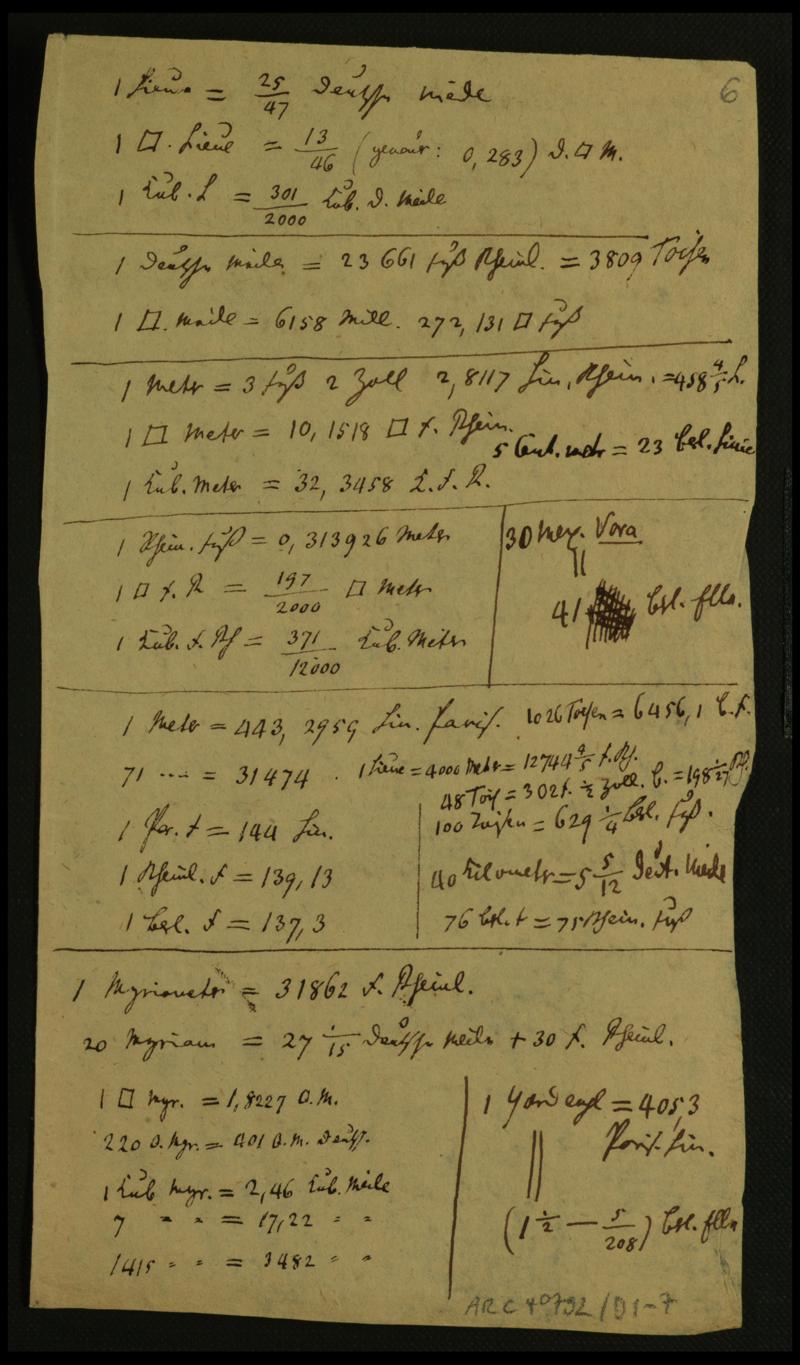 6
1 Lieue = 25/47 Deutsche Meile
1 □. Lieue = 13/46 (genauer: 0,283) D. □ M.
1 Kub. L = 301/2000 Kub. D. Meile
1 Deutsche Meile = 23661 Fuß Rheinl. = 3809 Toisen
1 □. Meile = 6158 Mill. 272,131 □ Fuß
1 Meter = 3 Fuß 2 Zoll 2,8117 Lin. Rhein. = 458 4/5 L.
1 □ Meter = 10,1518 □ F. Rhein.
5 Cent.metr = 23 brl. Linie
1 Kub. Meter = 32,3458 K. F. R.
1 Rhein. Fuß = 0,313926 Meter
1 □ F. R = 197/2000 □ Meter
1 Kub. F. Rh = 371/12000 Kub. Meter
30 Mex. Vara
=
41 brl. Elln.
1 Meter = 443,2959 Lin. Paris. 1026 Toisen = 6456,1 b. F.
71 --- = 31474 . 1 Lieue = 4000 Meter = 12744 4/5 F. Rh.
48 Tois = 302 F. 1/2 Zoll. b. = 198 1/27 Rh.
1 Par. F = 144 Lin.
100 Toisen = 629 1/4 brl. Fuß.
1 Rheinl. F = 139,13
40 Kilometr = 5 5/12 Deut. Meile
1 berl. F = 137,3
76 brl. F = 75 Rhein. Fuß
1 Myriameter = 31862 F. Rheinl.
20 Myriam = 27 1/15 Deutsche Meile + 30 F. Rheinl.
1 □ Myr. = 1,8227 □. M.
220 □. Myr. = 401 □. M. Deutsch.
1 Kub Myr. = 2,46 Kub. Meile
7 " " = 17,22 " "
1415 " " = 3482 " "
1 Yard engl = 405,3
Paris. Lin.
=
(1 1/2 — 5/208) brl. Elln
ARC 4° 792/D1-7